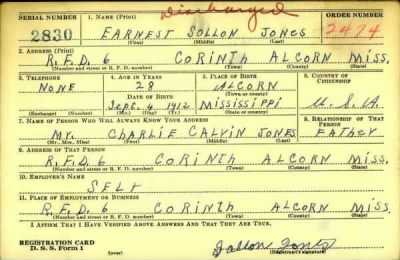 Discharged
SERIAL NUMBER 1. NAME (Print) ORDER NUMBER
2830 EARNEST SOLLON JONES 2474
(First) (Middle) (Last)
2. ADDRESS (Print)
R.F.D. 6 CORINTH ALCORN MISS.
(Number and street or R. F. D. number) (Town) (County) (State)
3. TELEPHONE 4. AGE IN YEARS 5. PLACE OF BIRTH 6. COUNTRY OF CITIZENSHIP
NONE 28 ALCORN
DATE OF BIRTH (Town or county)
Sept. 4 1912 MISSISSIPPI U.S.A.
(Exchange) (Number) (Mo.) (Day) (Yr.) (State or country)
7. NAME OF PERSON WHO WILL ALWAYS KNOW YOUR ADDRESS 8. RELATIONSHIP OF THAT PERSON
Mr. CHARLIE CALVIN JONES FATHER
(Mr., Mrs., Miss) (First) (Middle) (Last)
9. ADDRESS OF THAT PERSON
R.F.D. 6 CORINTH ALCORN MISS.
(Number and street or R. F. D. number) (Town) (County) (State)
10. EMPLOYER'S NAME
SELF
11. PLACE OF EMPLOYMENT OR BUSINESS
R.F.D. 6 CORINTH ALCORN MISS.
(Number and street or R. F. D. number) (Town) (County) (State)
I AFFIRM THAT I HAVE VERIFIED ABOVE ANSWERS AND THAT THEY ARE TRUE.
REGISTRATION CARD
D. S. S. Form 1 (over) Sollon Jones
(Registrant's signature)